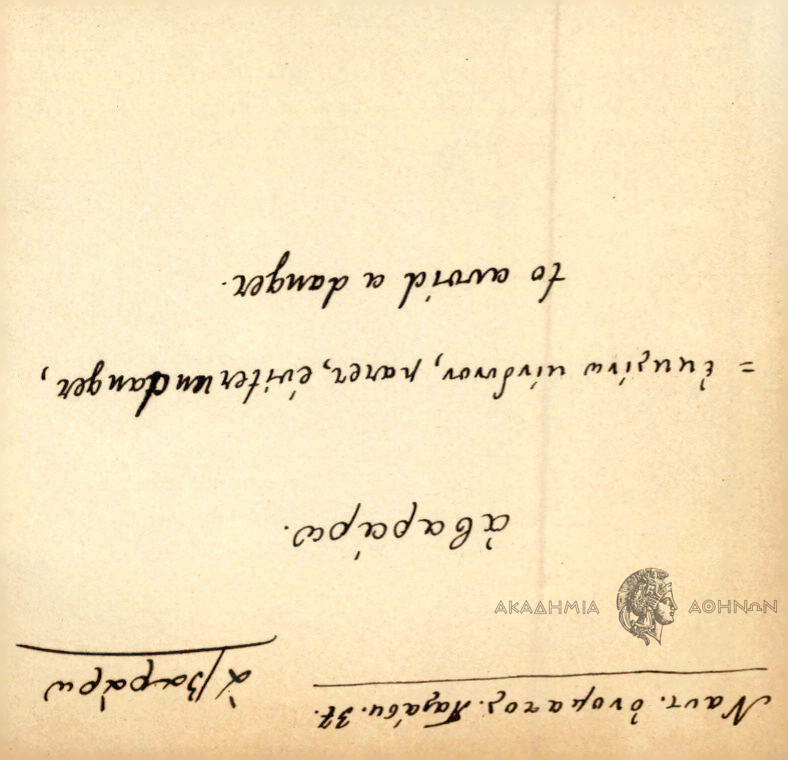 Ναυτ. ὀνοματος. Παλάσκ. 37.
ἀβαράρω
ἀβαράρω.
= ἐκκλίνω κίνδυνον, parer, éviter un danger,
to avoid a danger.
ΑΚΑΔΗΜΙΑ ΑΘΗΝΩΝ